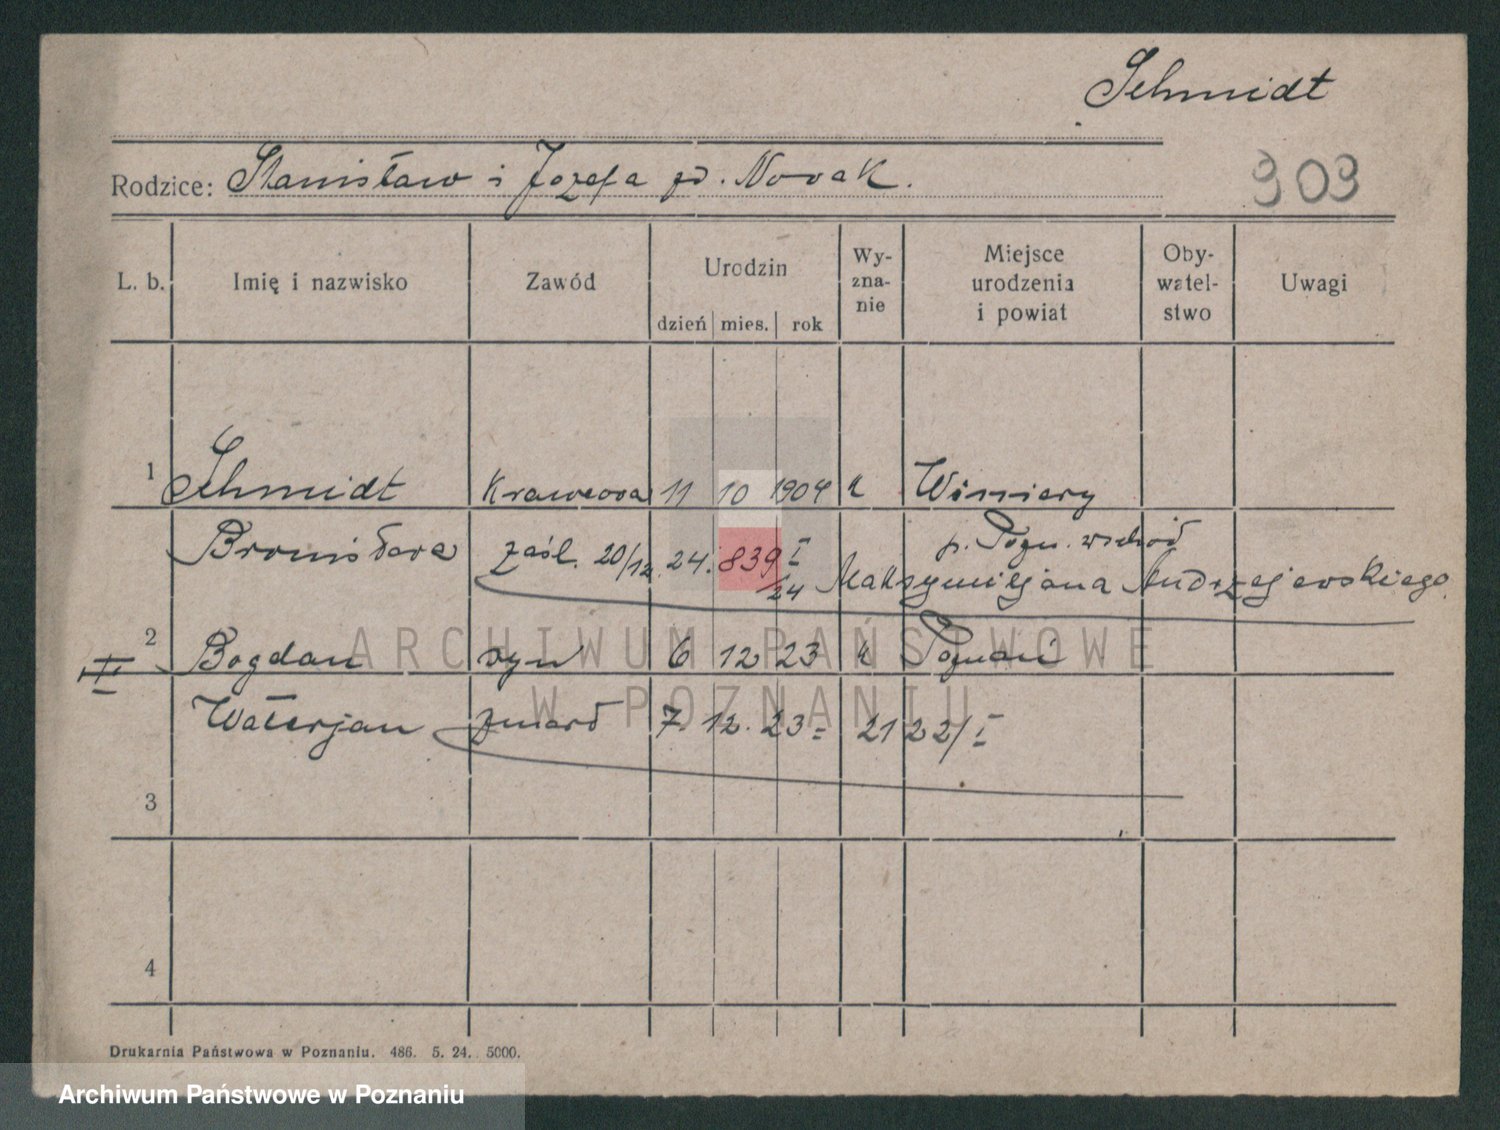 Schmidt
Rodzice: Stanisław i Józefa zd. Nowak.
303
L. b. Imię i nazwisko Zawód Urodzin dzień mies. rok Wy-zna-nie Miejsce urodzenia i powiat Oby-watel-stwo Uwagi
1 Schmidt Krawcowa 11 10 1904 k Winiary
Bronisława p. Pozn. wschód
zaśl. 20/12. 24. 839 I/24 Maksymiljana Andrzejewskiego.
2 Bogdan syn 6 12 23 k Poznań
II
Walerjan zmarł 7. 12. 23 = 2122/I
3
4
Drukarnia Państwowa w Poznaniu. 486. 5. 24. 5000.
ARCHIWUM PAŃSTWOWE
W POZNANIU
Archiwum Państwowe w Poznaniu